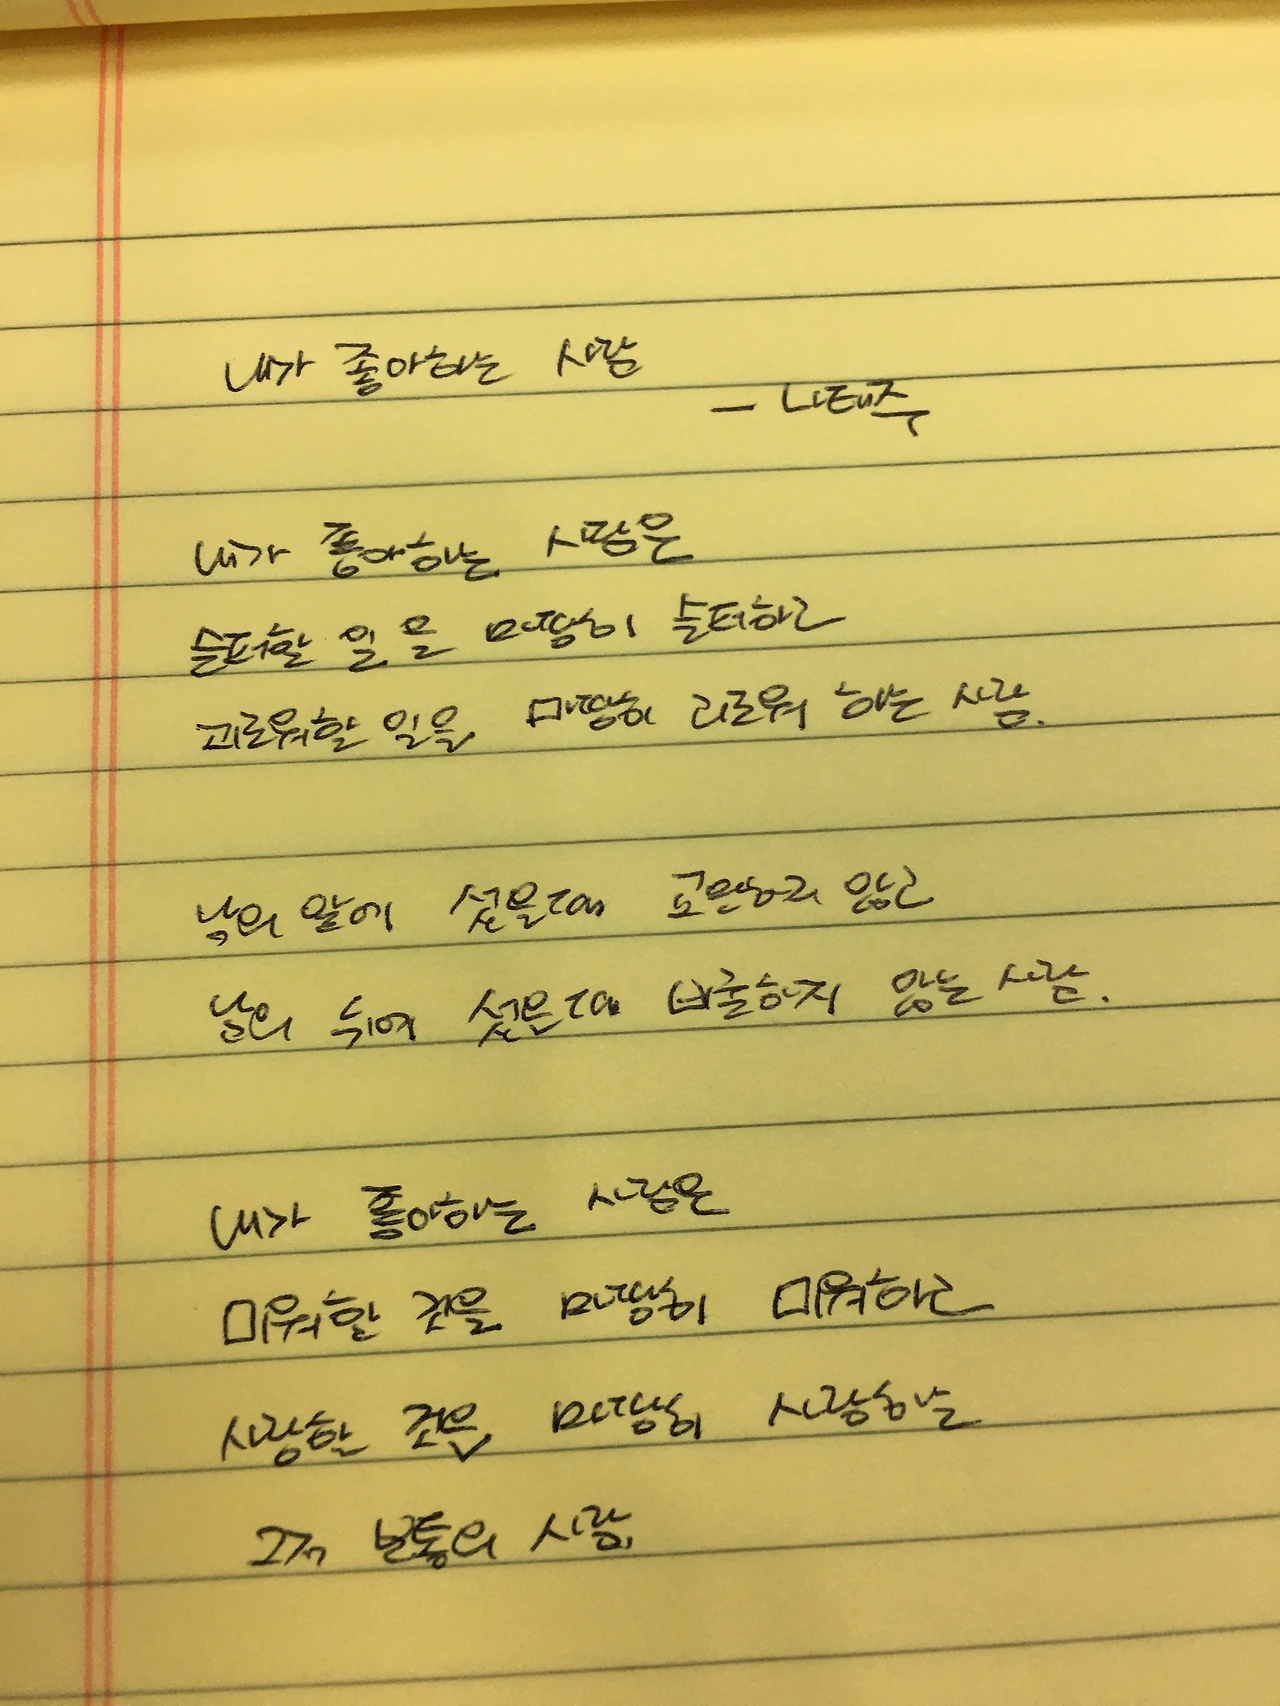 내가 좋아하는 사람
- 나태주
내가 좋아하는 사람은
슬퍼할 일을 마땅히 슬퍼하고
괴로워할 일을 마땅히 괴로워 하는 사람.
남의 앞에 섰을때 교만하지 않고
남의 뒤에 섰을때 비굴하지 않는 사람.
내가 좋아하는 사람은
미워할 것을 마땅히 미워하고
사랑할 것을 마땅히 사랑하는
그저 보통의 사람.